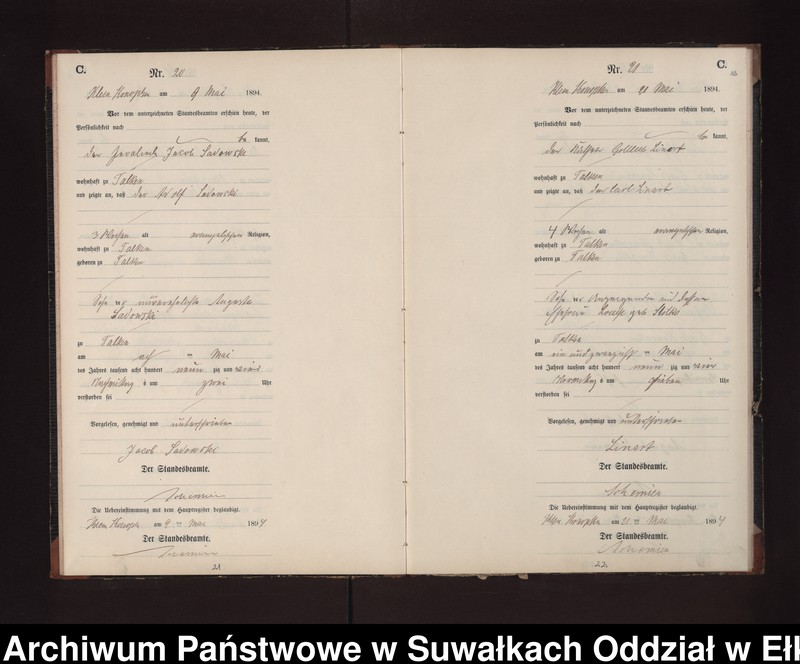 C.
Nr. 20
Klein Konopken am 9 Mai 1894.
Vor dem unterzeichneten Standesbeamten erschien heute, der
Persönlichkeit nach
be kannt,
der Jacob Sadowski
wohnhaft zu Talken
und zeigte an, daß der Adolf Sadowski
3 Wochen alt evangelischer Religion,
wohnhaft zu Talken
geboren zu Talken
Sohn der unverehelichte Auguste
Sadowski
zu Talken
am Mai
des Jahres tausend acht hundert neun zig und vier
Nachmittag s um zwei Uhr
verstorben sei
Vorgelesen, genehmigt und unterschrieben
Jacob Sadowski
Der Standesbeamte.
Die Uebereinstimmung mit dem Hauptregister beglaubigt.
Klein Konopken am 9 ten Mai 1894
Der Standesbeamte.
21
C.
Nr. 21
Klein Konopken am 21 Mai 1894.
Vor dem unterzeichneten Standesbeamten erschien heute, der
Persönlichkeit nach
be kannt,
der Gottlieb Linart
wohnhaft zu Talken
und zeigte an, daß der Carl Linart
4 Wochen alt evangelischer Religion,
wohnhaft zu Talken
geboren zu Talken
Sohn des Anzeigenden und dessen
Ehefrau geb
zu Talken
am ein und zwanzigsten Mai
des Jahres tausend acht hundert neun zig und vier
Vormittag s um sieben Uhr
verstorben sei
Vorgelesen, genehmigt und unterschrieben
Linart
Der Standesbeamte.
Die Uebereinstimmung mit dem Hauptregister beglaubigt.
Klein Konopken am 21 ten Mai 1894
Der Standesbeamte.
22
Archiwum Państwowe w Suwałkach Oddział w Ełk